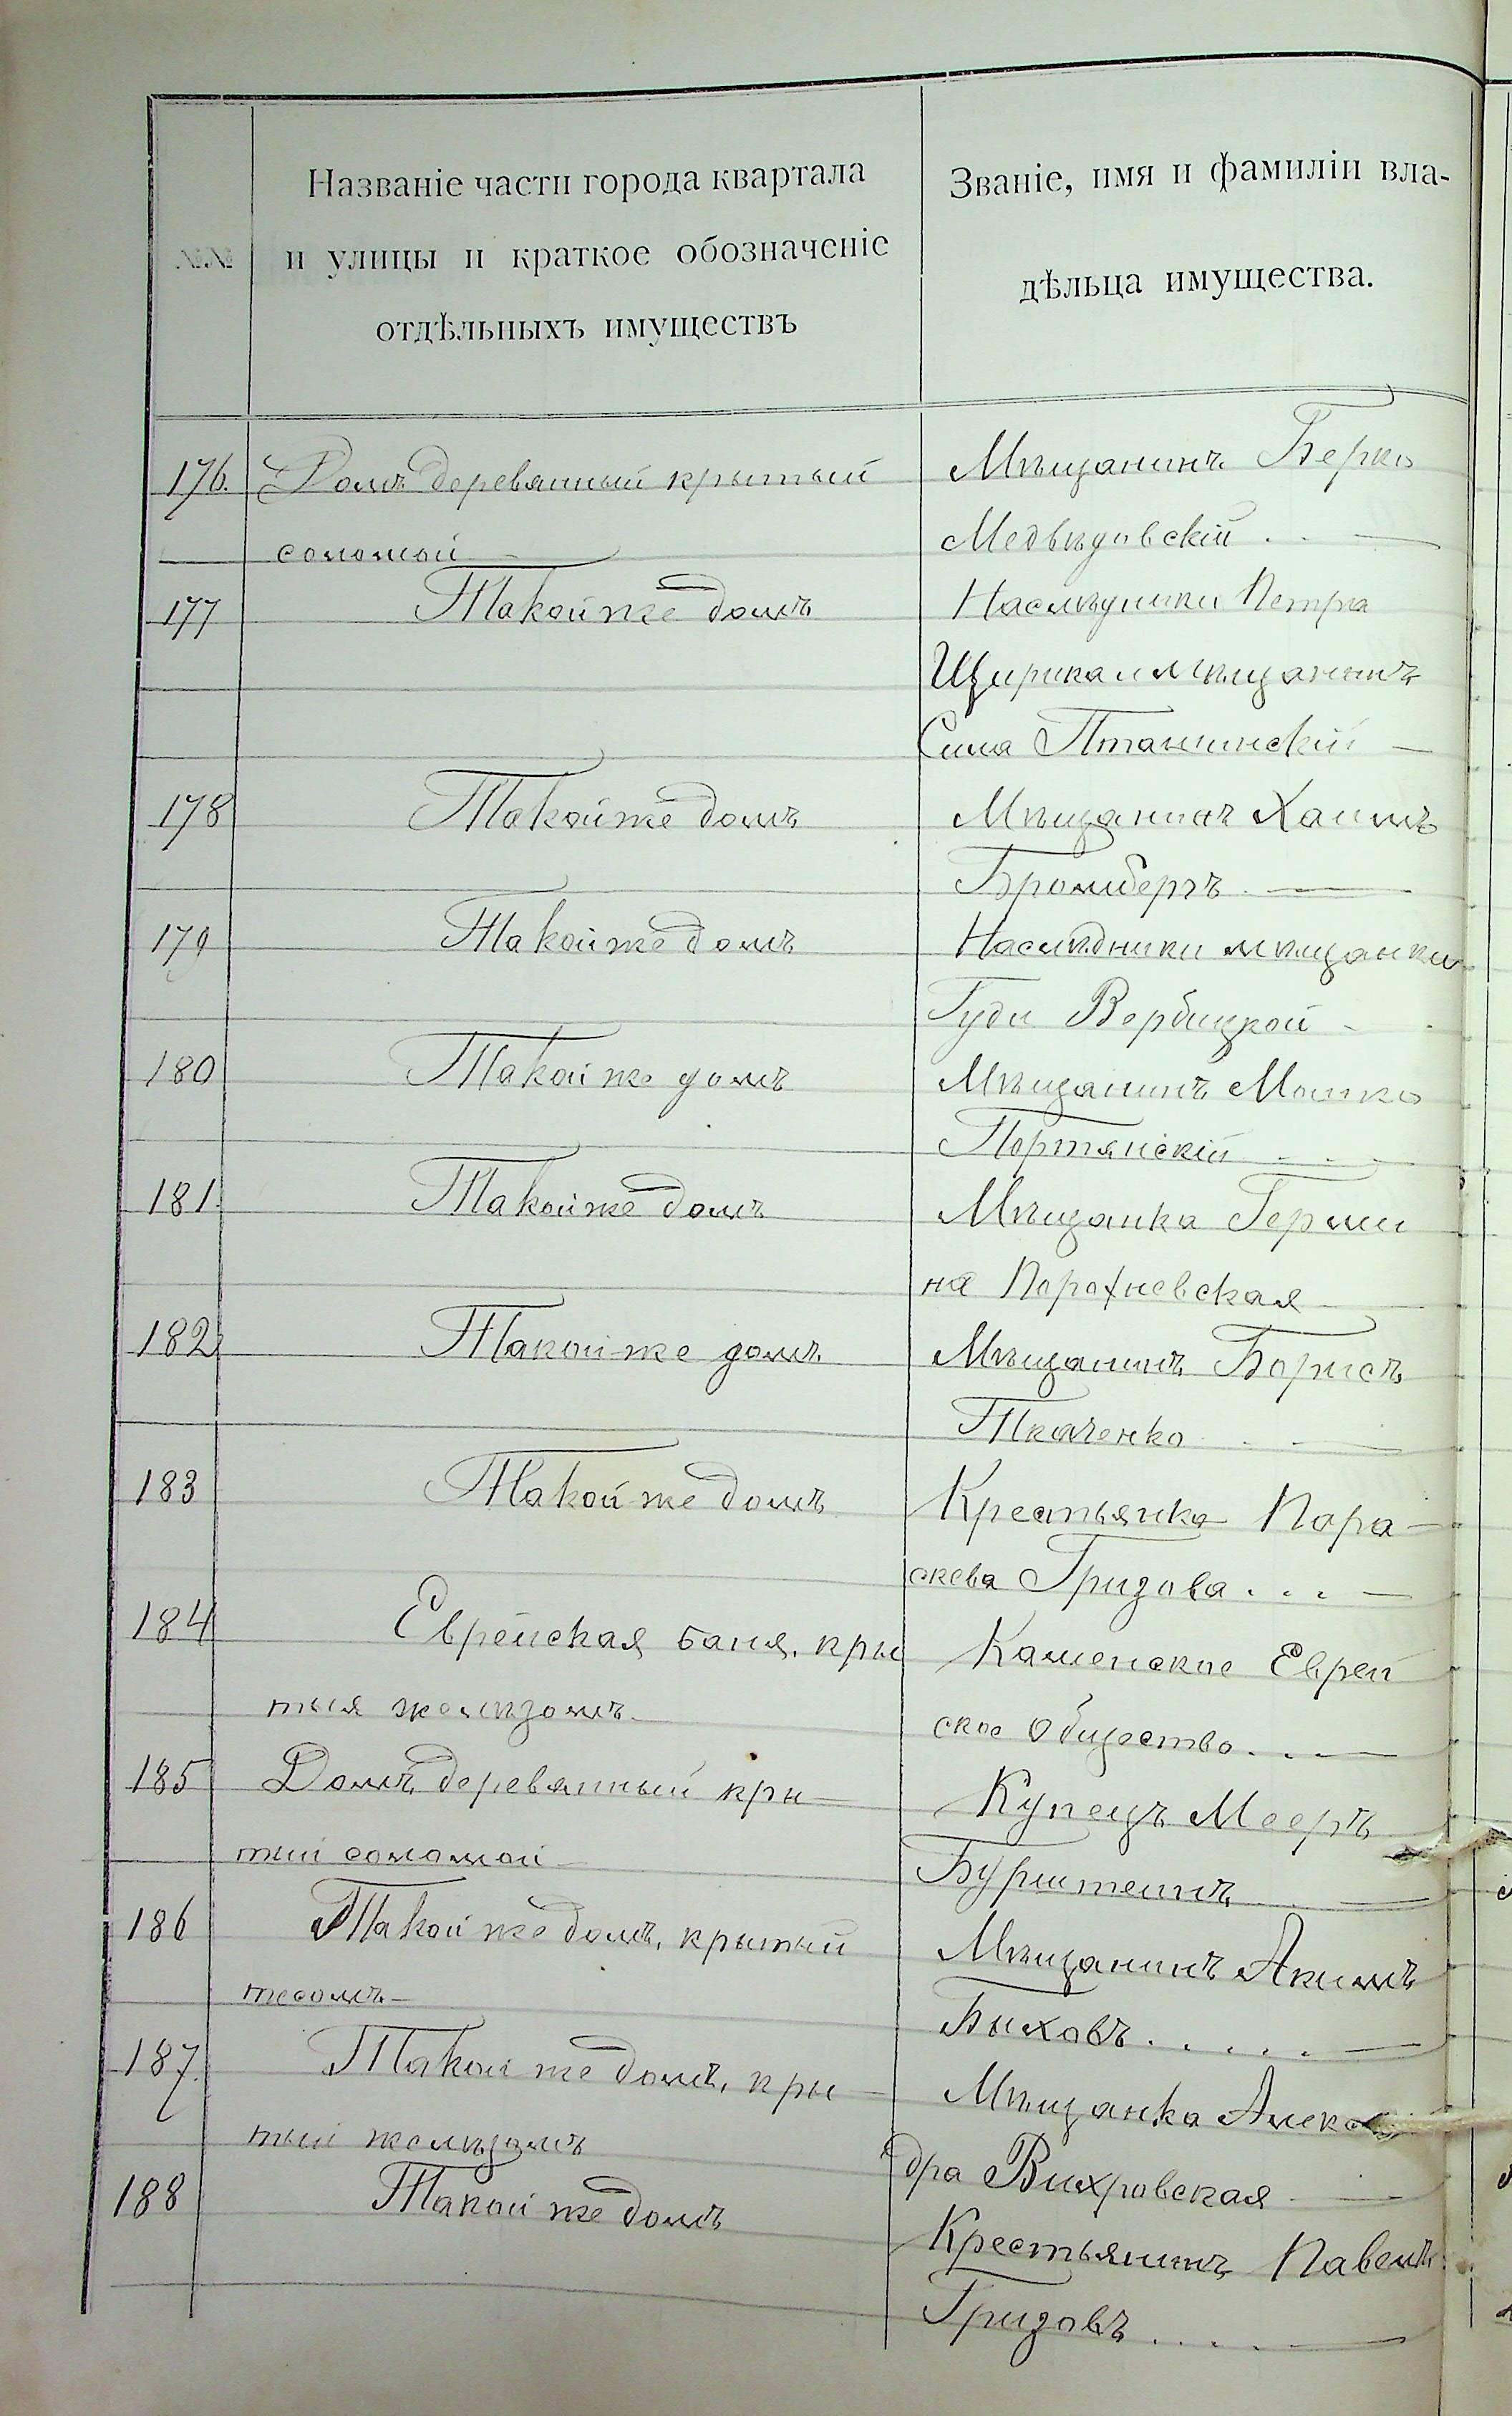 №№
Названіе части города квартала
и улицы и краткое обозначеніе
отдѣльныхъ имуществъ
Званіе, имя и фамиліи вла-
дѣльца имущества.
176. Домъ деревянный крытый
соломой
Мѣщанинъ Берко
Медвѣдовскій
177 Такой же домъ
Наслѣдники Петра
Щирика и мѣщанинъ
Сима Пташинскій
178 Такой же домъ
Мѣщанинъ Хаимъ
Бромбергъ
179 Такой же домъ
Наслѣдники мѣщанки
Гуди Вербицкой
180 Такой же домъ
Мѣщанинъ Мошко
Портянскій
181. Такой же домъ
Мѣщанка Герми
на Порохневская
182 Такой же домъ
Мѣщанинъ Борисъ
Ткаченко
183 Такой же домъ
Крестьянка Пара-
скева Гризова
184 Еврейская баня, кры
тыя желѣзомъ
Каменское Еврей
ское общество
185 Домъ деревянный кры-
тый соломой
Купецъ Мееръ
Бурштеинъ
186 Такой же домъ, крытый
тесомъ
Мѣщанинъ Акимъ
Быховъ
187. Такой же домъ, кры-
тый желѣзомъ
Мѣщанка Алекса
дра Вихровская
188 Такой же домъ
Крестьянинъ Павелъ
Гризовъ